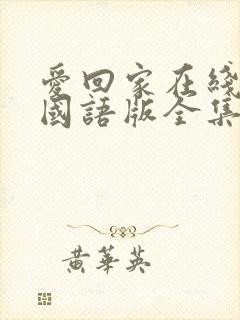 愛回家在綫
國語版全集
黄華英